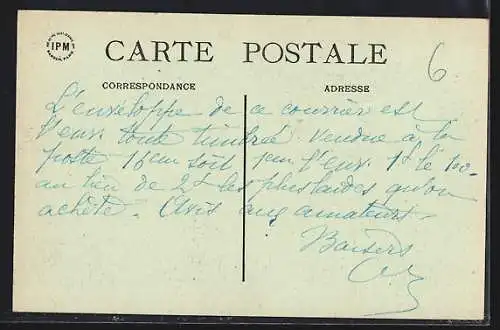 IPM
CARTE POSTALE
CORRESPONDANCE
ADRESSE
6
L'enveloppe de ce courrier est
l'env. toute timbrée vendue à la
poste 16 cm soit l'env. 1f le
au lieu de 2f les plus laides qu'on
achète. Avis aux amateurs.
Baisers